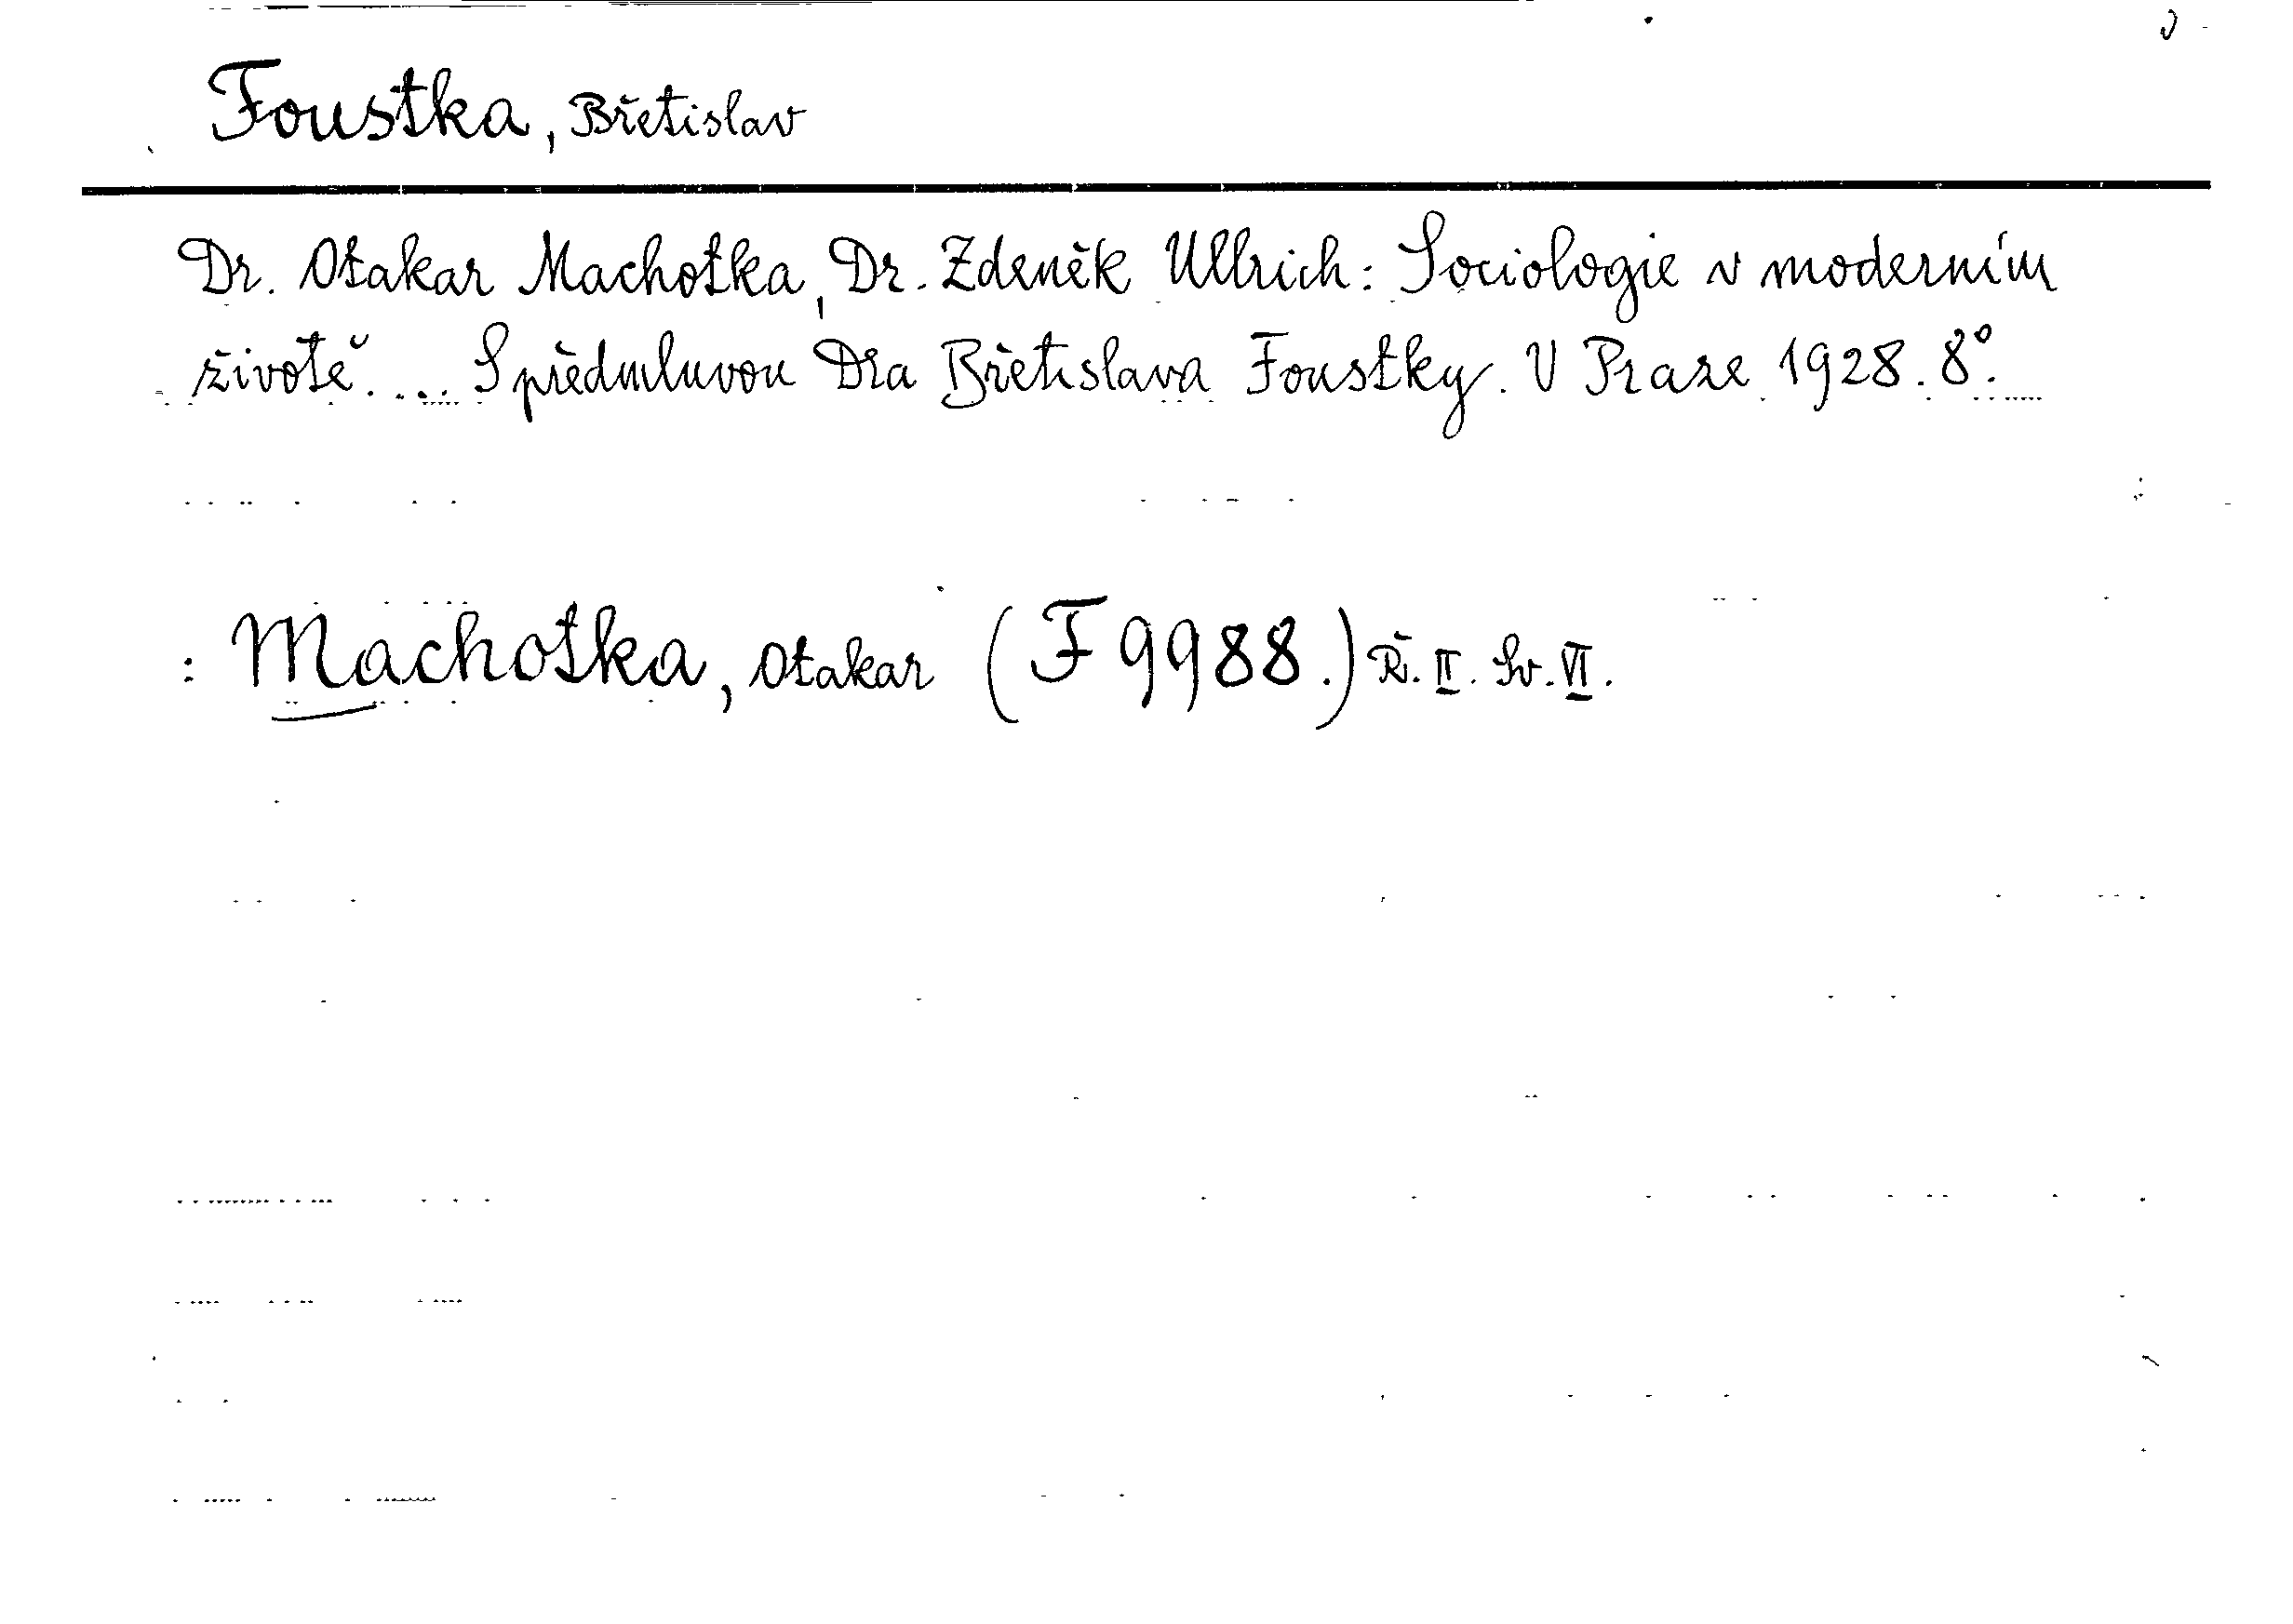 Foustka, Břetislav
Dr. Otakar Machotka, Dr. Zdeněk Ullrich: Sociologie v moderním
životě. ... S předmluvou Dra Břetislava Foustky. V Praze 1928. 8°.
: Machotka, Otakar (F 9988.) Ř. II. Sv. VI.